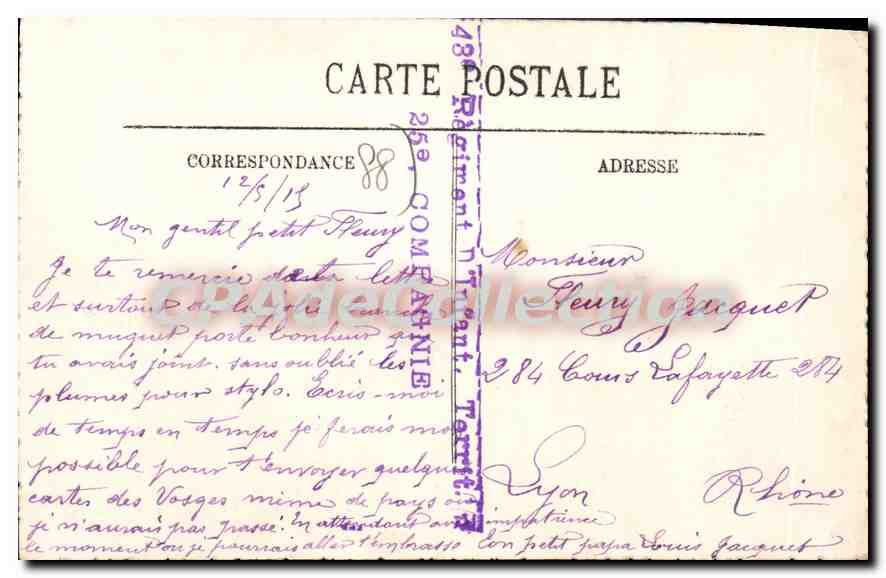 CARTE POSTALE
CORRESPONDANCE
ADRESSE
88
12/5/15
Mon gentil petit Fleury
Je te remercie de ta lettre
et surtout de la jolie branche
de muguet porte bonheur que
tu avais joint. sans oublié les
plumes pour stylo. Ecris-moi
de temps en temps je ferais mon
possible pour t'envoyer quelques
cartes des Vosges même de pays où
je n'aurais pas passé. En attendant avec impatience
le moment où je pourrais aller t'embrasser Ton petit papa Louis Jacquet
Monsieur
Fleury Jacquet
284 Cours Lafayette 284
Lyon
Rhône
48e Régiment Territ.
25e. COMPAGNIE
CPAdeCollection